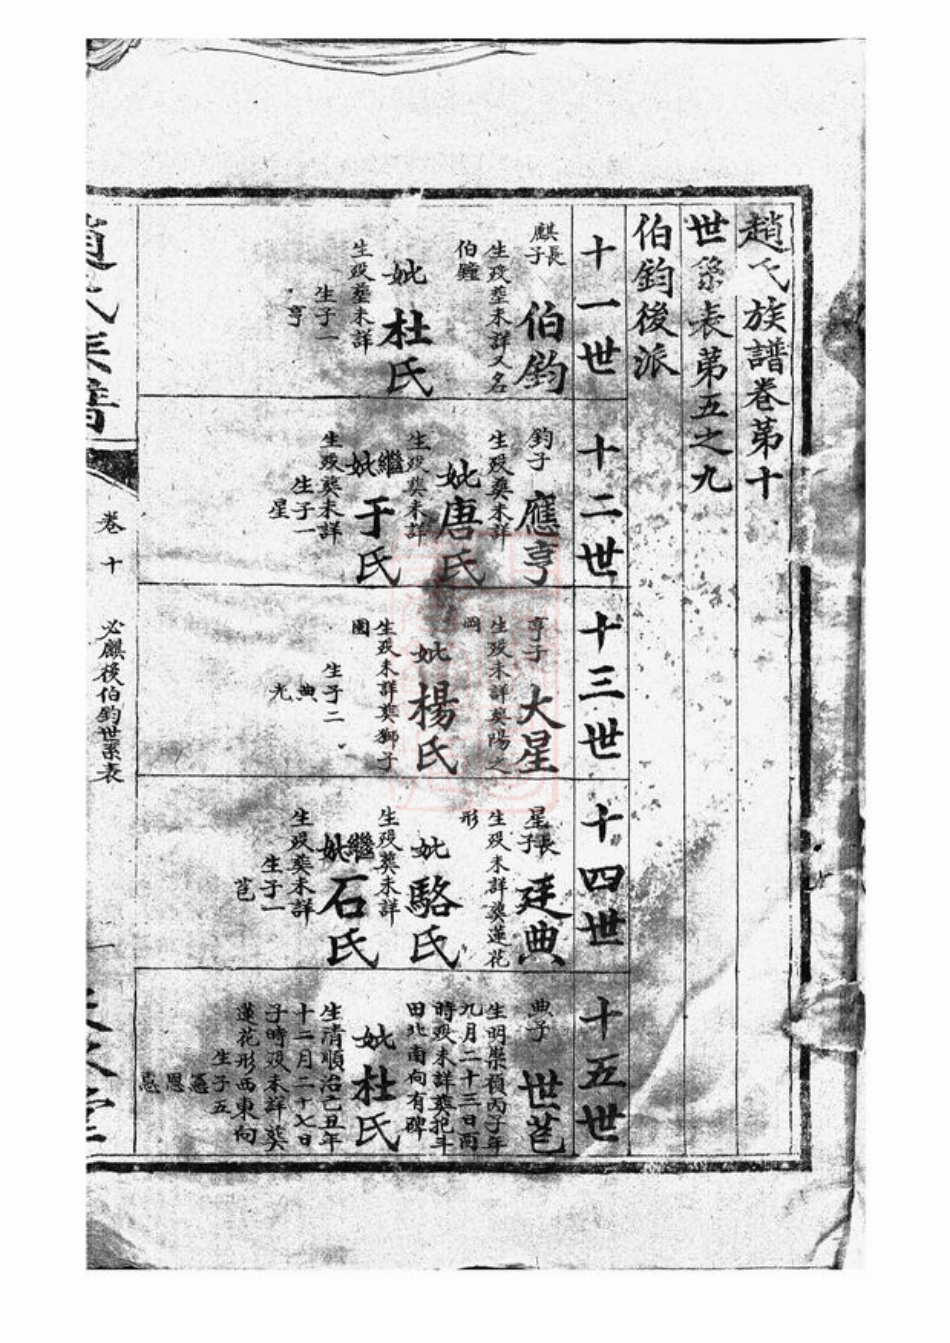 趙氏族譜卷第十
世系表第五之九
伯鈞後派
十一世
麒長子
伯鈞
生歿塟未詳又名
伯鐘
妣杜氏
生歿塟未詳
生子一
亨
十二世
鈞子
應亨
生歿葬未詳
妣唐氏
生歿葬未詳
繼妣于氏
生歿葬未詳
生子一
星
十三世
亨子
大星
生歿未詳葬陽之
岡
妣楊氏
生歿未詳葬獅子
圈
生子二
典
光
十四世
星長子
廷典
生歿未詳葬蓮花
形
妣駱氏
生歿葬未詳
繼妣石氏
生歿葬未詳
生子一
芑
十五世
典子
世芑
生明崇禎丙子年
九月二十三日酉
時歿未詳葬把斗
田北南向有碑
妣杜氏
生清順治己丑年
十二月二十七日
子時歿未詳葬
蓮花形西東向
生子五
恩
趙氏族譜
卷十
必麒後伯鈞世系表
一